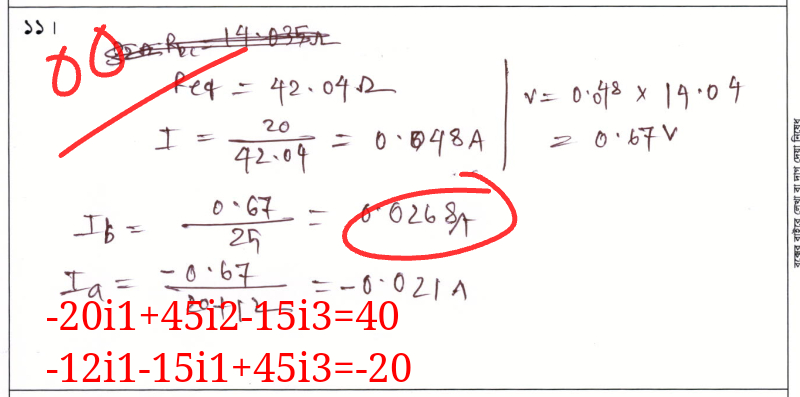 ১১।
00
Req = 42.04Ω
I = 20/42.04 = 0.048A
V = 0.048 × 14.04
= 0.67V
Ib = 0.67/25 = 0.0268A
Ia = -0.67/20+12 = -0.021A
-20i1+45i2-15i3=40
-12i1-15i1+45i3=-20
বক্সের বাইরে লেখা বা দাগ দেয়া নিষেধ